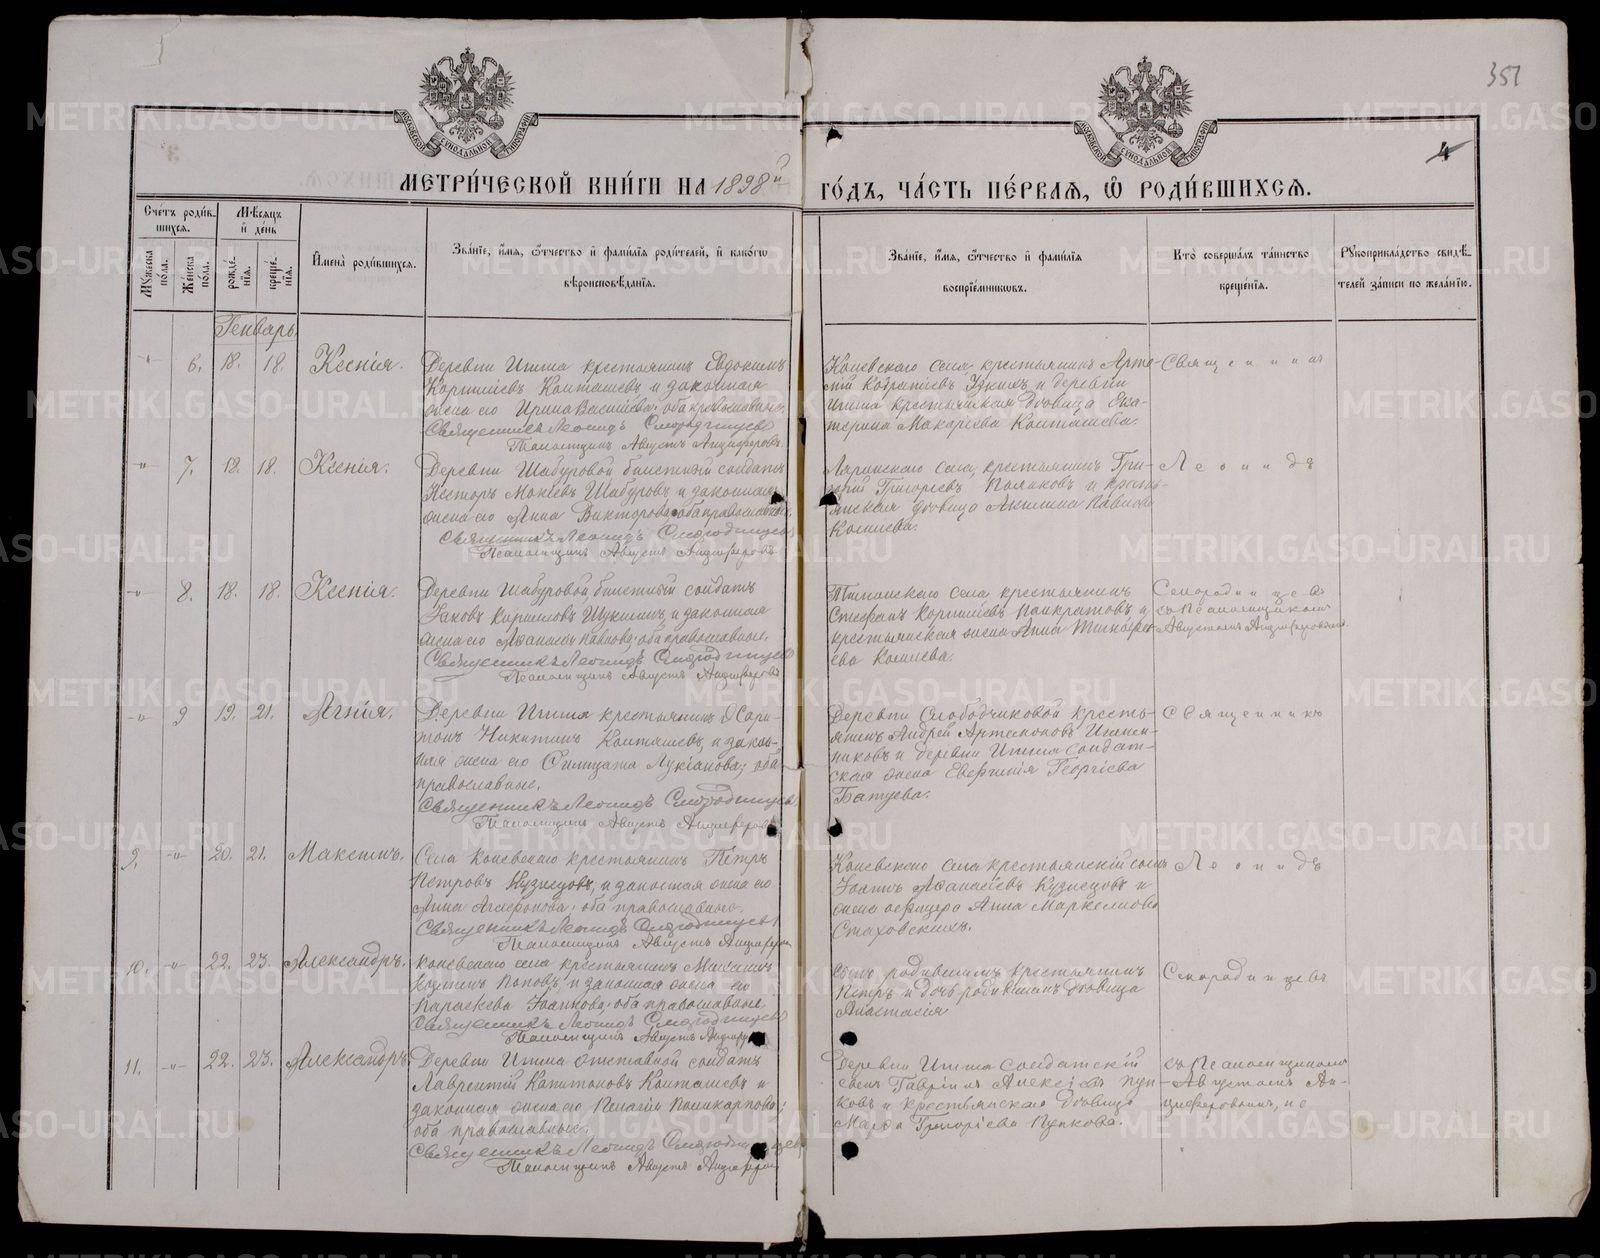 351
4
МЕТРИ́ЧЕСКОЙ КНИ́ГИ НА 1898й ГО́ДЪ, ЧА́СТЬ ПЕ́РВАЯ, Ѽ РОДИ́ВШИХСЯ.
Сче́тъ роди́вшихся.
Мꙋ́жеска по́ла.
Же́нска по́ла.
Мѣ́сяцъ и҆ де́нь
рожде́нїя.
креще́нїя.
И҆мена̀ роди́вшихся.
Зва́нїе, и҆́мя, ѻ҆́тчество и҆ фами́лїя роди́телей, и҆ како́гѡ вѣроисповѣ́данїя.
Зва́нїе, и҆́мя, ѻ҆́тчество и҆ фами́лїя воспрїе́мникѡвъ.
Кто̀ соверша́лъ та́инство креще́нїя.
Рꙋкоприкла́дство свидѣ́телей за́писи по жела́нїю.
Генварь
6. 18. 18. Ксенія.
Деревни Итша крестьянинъ Евдокимъ
Корниліевъ Конташевъ и законная
жена его Ирина Васильева; оба православные.
Священникъ Леонидъ Смородинцевъ
Псаломщикъ Августъ Анциферовъ.
Коневскаго села крестьянинъ
и деревни
Итша крестьянская дѣвица Ека-
терина Макаріева Конташева.
Священникъ
7. 18. 18. Ксенія.
Деревни Шабуровой билетный солдатъ
Несторъ Мокіевъ Шабуровъ и законная
жена его Анна Викторова; оба православные.
Священникъ Леонидъ Смородинцевъ
Псаломщикъ Августъ Анциферовъ
села крестьянинъ Гри-
горій Григоріевъ Поляковъ и кресть-
янская дѣвица Акилина Павлова
Леонидъ
8. 18. 18. Ксенія.
Деревни Шабуровой билетный солдатъ
Яковъ Кирилловъ Щукинъ и законная
жена его Павлова; оба православные.
Священникъ Леонидъ Смородинцевъ
Псаломщикъ Августъ Анциферовъ
села крестьянинъ
Стефанъ Корниліевъ Панкратовъ и
крестьянская жена Анна
Смородинцевъ
съ Псаломщикомъ
Августомъ Анциферовымъ.
9 19. 21. Агнія.
Деревни Итша крестьянинъ Хари-
тонъ Никитинъ Конташевъ и закон-
ная жена его Лукіанова; оба
православные.
Священникъ Леонидъ Смородинцевъ
Псаломщикъ Августъ Анциферовъ
Деревни Слободчиковой кресть-
янинъ Андрей Артамоновъ
и деревни Итша солдат-
ская жена Евфимія Георгіева
Батуева.
Священникъ
9. 20. 21. Максимъ.
Села Коневскаго крестьянинъ Петръ
Петровъ Кузнецовъ и законная жена его
Анна Агафонова; оба православные.
Священникъ Леонидъ Смородинцевъ
Псаломщикъ Августъ Анциферовъ
Коневскаго села крестьянскій сынъ
Іоаннъ Аѳанасіевъ Кузнецовъ и
жена офицера Анна Маркеллова
Стаховскихъ.
Леонидъ
10. 22. 23. Александръ.
Коневскаго села крестьянинъ Максимъ
Поповъ и законная жена его
Параскева Іоаннова; оба православные.
Священникъ Леонидъ Смородинцевъ
Псаломщикъ Августъ Анциферовъ
крестьянинъ
Петръ и дочь дѣвица
Анастасія
Смородинцевъ
11. 22. 23. Александръ.
Деревни Итша отставной солдатъ
Лаврентій Капитоновъ Конташевъ и
законная жена его Пелагія Поликарпова;
оба православные.
Священникъ Леонидъ Смородинцевъ
Псаломщикъ Августъ Анциферовъ
Деревни Итша солдатскій
сынъ Гавріилъ Алексіевъ Пуп-
ковъ и крестьянская дѣвица
Марѳа Григоріева Пупкова.
съ Псаломщикомъ
Августомъ Ан-
циферовымъ
METRIKI.GASO-URAL.RU